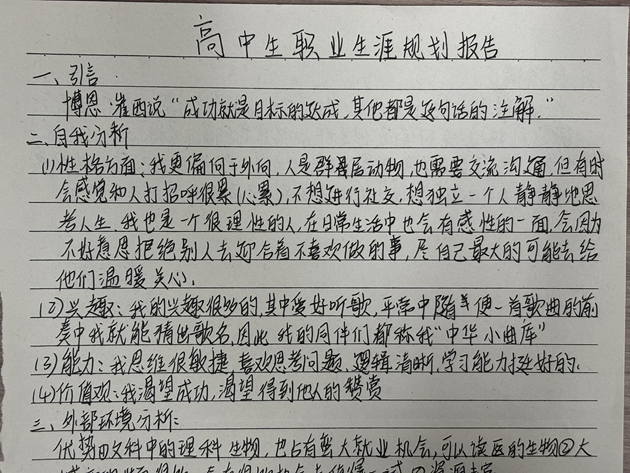 高中生职业生涯规划报告
一、引言
博恩·崔西说“成功就是目标的达成,其他都是这句话的注解.”
二、自我分析
(1)性格方面:我更偏向于外向,人是群居动物,也需要交流沟通,但有时
会感觉和人打招呼很累(心累),不想进行社交,想独立一个人静静地思
考人生.我也是一个很理性的人,在日常生活中也会有感性的一面,会因为
不好意思拒绝别人去迎合着不喜欢做的事,尽自己最大的可能去给
他们温暖关心.
(2)兴趣:我的兴趣很多的,其中爱好听歌,平常中随便一首歌曲的前
奏中我就能猜出歌名,因此我的同伴们都称我“中华小曲库”
(3)能力:我思维很敏捷,喜欢思考问题,逻辑清晰,学习能力挺好的.
(4)价值观:我渴望成功,渴望得到他人的赞赏
三、外部环境分析:
优势①文科中的理科生物,也占有蛮大就业机会,可以读医的生物②大